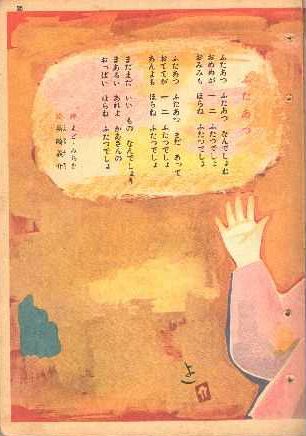 ふたあつ
ふたあつ ふたあつ なんでしょね
おめめが 一二 ふたつでしょ
おみみも ほらね ふたつでしょ
ふたあつ ふたあつ まだ あって
おててが 一二 ふたつでしょ
あんよも ほらね ふたつでしょ
まだまだ いい もの なんでしょか
まあるい あれよ かあさんの
おっぱい ほらね ふたつでしょ
詩 まど・みちお